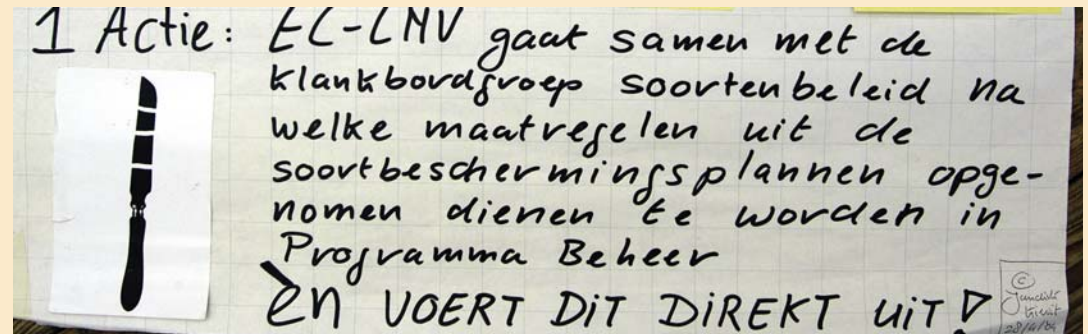 1 Actie: EC-LNV gaat samen met de
klankbordgroep soortenbeleid na
welke maatregelen uit de
soortbeschermingsplannen opge-
nomen dienen te worden in
Programma Beheer
èn VOERT DiT DiREKT UiT
©
28/4/04